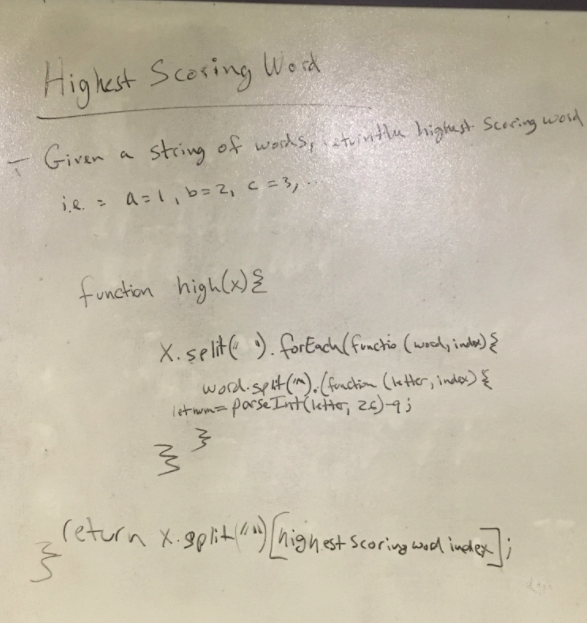 Highest Scoring Word
- Given a string of words, return the highest scoring word
i.e. = a=1, b=2, c=3,...
function high(x){
x.split(" ").forEach(functio (word, index){
word.split("").(function (letter, index){
let num= parseInt(letter, 26)-9;
}
}
return x.split(" ")[highest scoring wod index];
}